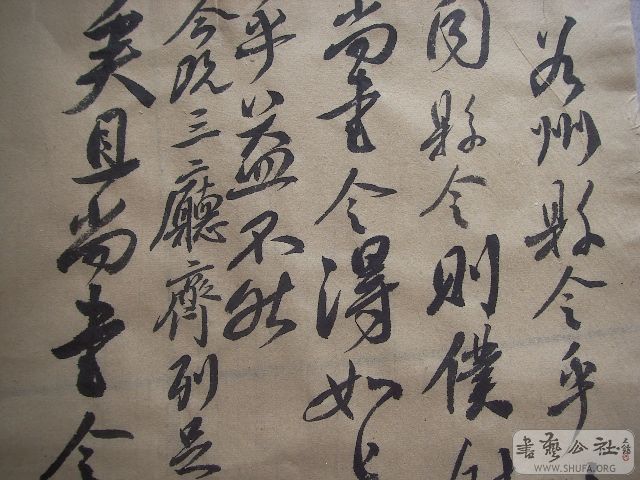 若州縣令乎
同縣令則僕
尚書令得如上
乎益不然
今既三廳齊列足
史且尚書令
書藝公社
WWW.SHUFA.ORG